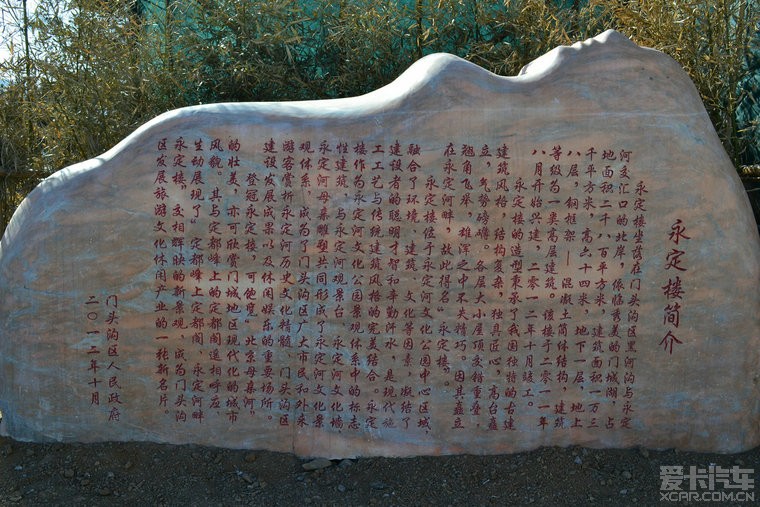 永定楼简介
永定楼坐落在门头沟区黑河沟与永定
河交汇口的北岸，依临秀美的门城湖，占
地面积二千八百平方米，建筑面积一万三
千平方米，高六十四米，地下一层，地上
八层，钢框架——混凝土筒体结构，建筑
等级为一类高层建筑。该楼于二零一一年
八月开始兴建，二零一二年十月竣工。
永定楼的造型秉承了我国独特的古建
建筑风格，结构复杂，独具匠心，高台矗
立，气势磅礴。各层大小屋顶交错重叠，
翘角飞举，雄浑之中不失精巧。因其矗立
在永定河畔，故此得名“永定楼”。
永定楼位于永定河文化公园中心区域，
融合了环境、建筑、文化等因素，凝结了
建设者的聪明才智和辛勤汗水，是现代施
工工艺与传统建筑风格的完美结合。永定
楼作为永定河文化公园景观体系中的标志
性建筑，与永定河观景台、永定河文化墙、
永定河母亲雕塑共同形成了永定河文化景
观体系，成为了门头沟区广大市民和外来
游客赏析永定河历史文化精髓、门头沟区
建设发展成果以及休闲娱乐的重要场所。
登冠永定楼，可饱览“北京母亲河”
的壮美，亦可欣赏门城地区现代化的城市
风貌。其与定都峰上的定都阁遥相呼应，
生动展现了“定都峰上定都阁、永定河畔
永定楼”交相辉映的新景观，成为门头沟
区发展旅游文化休闲产业的一张新名片。
门头沟区人民政府
二〇一二年十月
爱卡汽车
XCAR.COM.CN